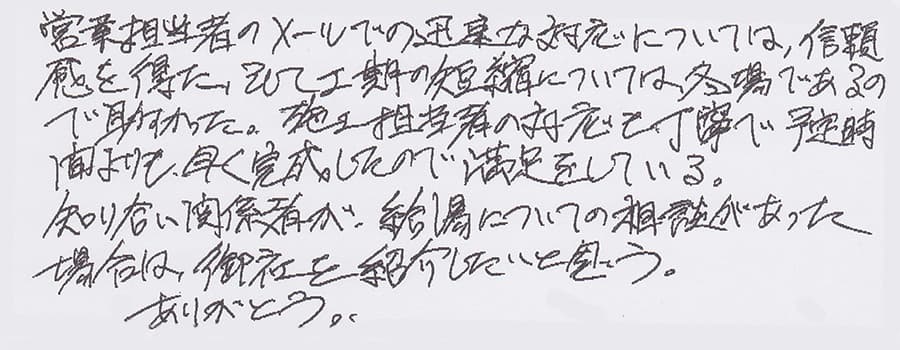 営業担当者のメールでの迅速な対応については、信頼
感を得た、そして工期の短縮については、冬場であるの
で助かった。施工担当者の対応も丁寧で予定時
間よりも早く完成したので満足をしている。
知り合い関係者が、給湯についての相談があった
場合は、御社を紹介したいと思う。
ありがとう。